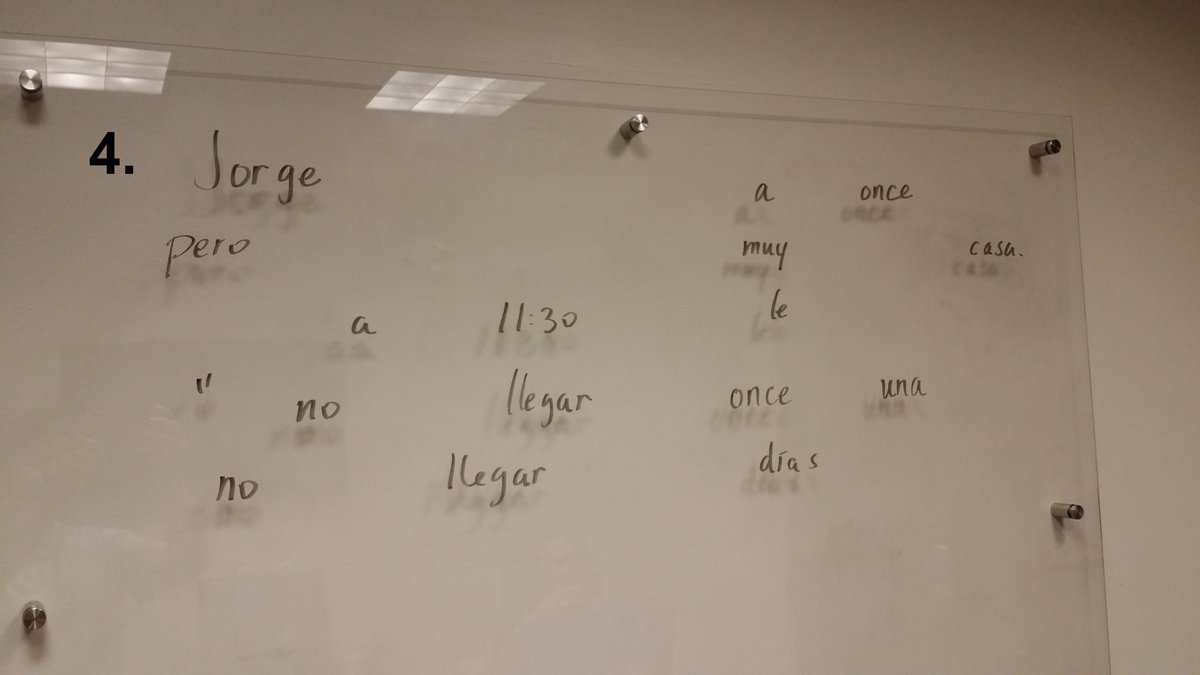 4. Jorge a once
pero muy casa.
a 11:30 le
" no llegar once una
no llegar días